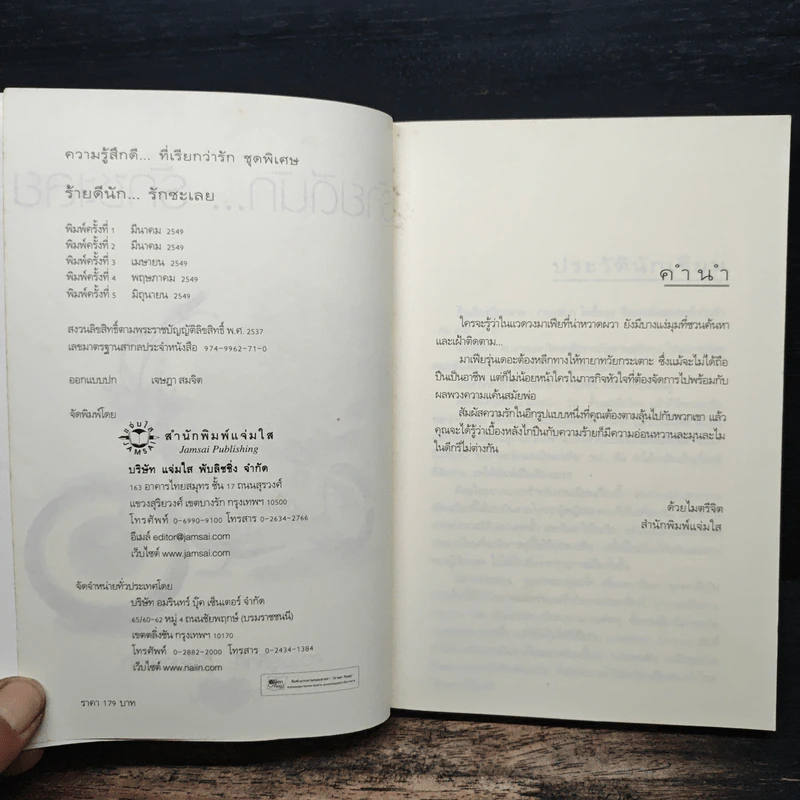 ความรู้สึกดี... ที่เรียกว่ารัก ชุดพิเศษ
ร้ายดีนัก... รักซะเลย
พิมพ์ครั้งที่ 1 มีนาคม 2549
พิมพ์ครั้งที่ 2 มีนาคม 2549
พิมพ์ครั้งที่ 3 เมษายน 2549
พิมพ์ครั้งที่ 4 พฤษภาคม 2549
พิมพ์ครั้งที่ 5 มิถุนายน 2549
สงวนลิขสิทธิ์ตามพระราชบัญญัติลิขสิทธิ์ พ.ศ. 2537
เลขมาตรฐานสากลประจำหนังสือ 974-9962-71-0
ออกแบบปก เจษฎา สมจิต
จัดพิมพ์โดย
แจ่มใส
JAMSAI
สำนักพิมพ์แจ่มใส
Jamsai Publishing
บริษัท แจ่มใส พับลิชชิ่ง จำกัด
163 อาคารไทยสมุทร ชั้น 17 ถนนสุรวงศ์
แขวงสุริยวงศ์ เขตบางรัก กรุงเทพฯ 10500
โทรศัพท์ 0-6990-9100 โทรสาร 0-2634-2766
อีเมล์ editor@jamsai.com
เว็บไซต์ www.jamsai.com
จัดจำหน่ายทั่วประเทศโดย
บริษัท อมรินทร์ บุ๊ค เซ็นเตอร์ จำกัด
65/60-62 หมู่ 4 ถนนชัยพฤกษ์ (บรมราชชนนี)
เขตตลิ่งชัน กรุงเทพฯ 10170
โทรศัพท์ 0-2882-2000 โทรสาร 0-2434-1384
เว็บไซต์ www.naiin.com
ราคา 179 บาท
คำนำ
ใครจะรู้ว่าในแวดวงมาเฟียที่น่าหวาดผวา ยังมีบางแง่มุมที่ชวนค้นหา
และเฝ้าติดตาม...
มาเฟียรุ่นเดอะต้องหลีกทางให้ทายาทวัยกระเตาะ ซึ่งแม้จะไม่ได้ถือ
ปืนเป็นอาชีพ แต่ก็ไม่น้อยหน้าใครในภารกิจหัวใจที่ต้องจัดการไปพร้อมกับ
ผลพวงความแค้นสมัยพ่อ
สัมผัสความรักในอีกรูปแบบหนึ่งที่คุณต้องตามลุ้นไปกับพวกเขา แล้ว
คุณจะได้รู้ว่าเบื้องหลังไกปืนกับความร้ายก็มีความอ่อนหวานละมุนละไม
ในดีกรีไม่ต่างกัน
ด้วยไมตรีจิต
สำนักพิมพ์แจ่มใส